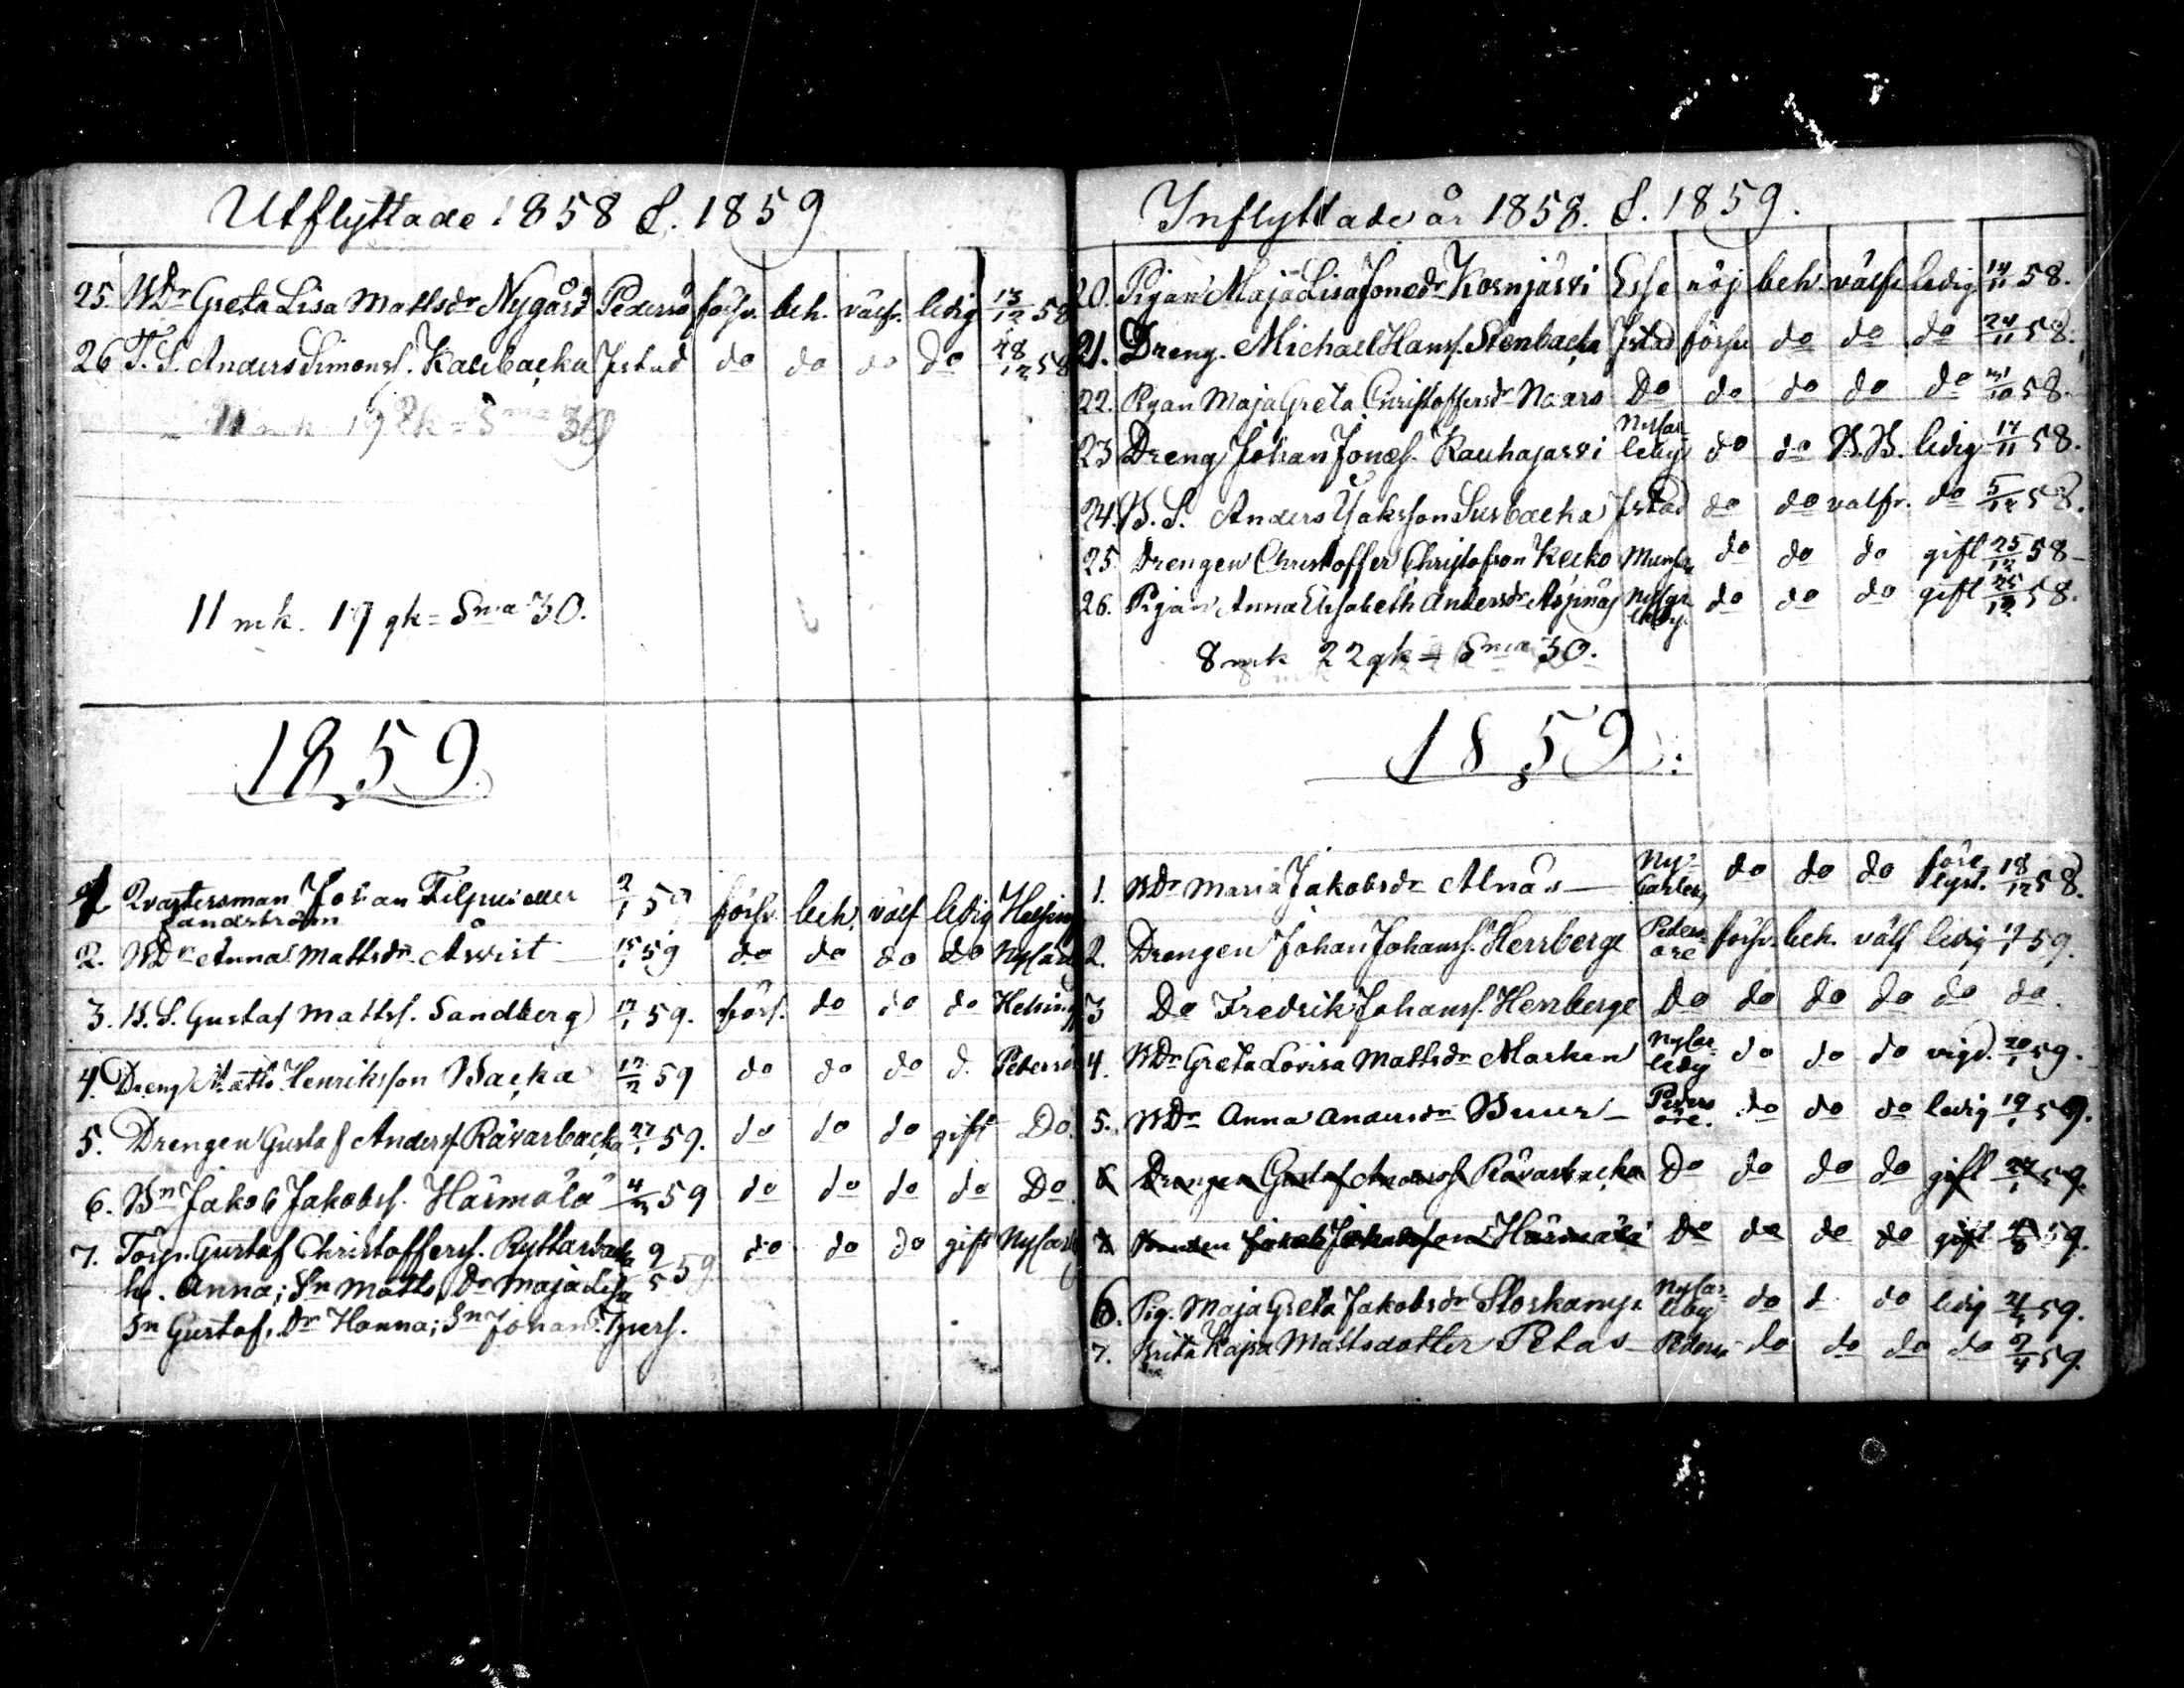 Utflyttade 1858 & 1859
25. WDr Greta Lisa Mattsdr Nygård Pedersö försv. beh. välfr. ledig 13/12 58
26 T. S. Anders Simonss. Kallbacka Jstad do do do do 48/12 58
11 mk 19 gk = Sma 30
11 mk. 19 gk = Sma 30.
1859
1 Qvartersman Johan Filpus eller 2/1 59 försv. beh. välf ledig Helsing
Sandström
2. WDr Anna Mattsdr Åvist 15/1 59 do do do do Nycarl
3. B. S. Gustaf Mattss. Sandberg 17/1 59. förs. do do do Helsing
4. Dreng Matts Henriksson Backa 17/2 59 do do do d. Pedersö
5. Drengen Gustaf Anderss. Rävarbacka 27/1 59. do do do gift Do.
6. Bn Jakob Jakobss. Härmälä 4/3 59 do do do do Do
7. Torp. Gustaf Christofferss. Ryttarbacka 9/5 59 do do do gift Nycarl
h. Anna; Sn Matts, Dr Maja Lisa
Sn Gustaf, Dr Hanna; Sn Johan. 7 pers.
Inflyttade år 1858. & 1859.
20. Pigan Maja Lisa Jonædr Kornjärvi Esse nöj beh. välfr ledig 14/11 58.
21. Dreng. Michael Hanss. Stenbacka Jstad försv do do do 24/11 58.
22. Pigan Maja Greta Christoffersdr Naars Do do do do do 31/10 58.
23 Dreng Johan Jonæs. Rauhajarvi Nycar-leby do do B.B. ledig 17/11 58.
24. B. S. Anders Jaksson Lusbacka Jstad do do valfr. do 5/12 58.
25. Drengen Christoffer Christofson Keeko Munsa do do do gift 25/12 58
26. Pigan Anna Elisabeth Andersdr Aspnäs Nycar-leby. do do do gift 25/12 58.
8 mk 22 gk = Sma 30.
1859:
1. WDr Maria Jakobsdr Alnäs Ny-Carleby do do do före lyst. 18/12 58.
2. Drengen Johan Johanss. Herrberge Peders-öre försv. beh. välf ledig 17/1 59.
3 Do Fredrik Johanss. Herrberge Do do do do do do.
4. WDr Greta Lovisa Mattsdr Marken Nycar-leby do do do vigd. 20/1 59.
5. WDr Anna Andersdr Buur Peders-öre. do do do ledig 19/1 59.
6 Drengen Gustaf Anderss. Rävarbacka Do do do do gift 27/1 59.
7 Bonden Jakob Jakobsson Härmälä Do do do do gift 4/3 59.
6. Pig. Maja Greta Jakobsdr Storkamp Nycar-leby do d. do ledig 21/3 59.
7. Brita Kajsa Mattsdotter Petas Peders do do do do 9/4 59.